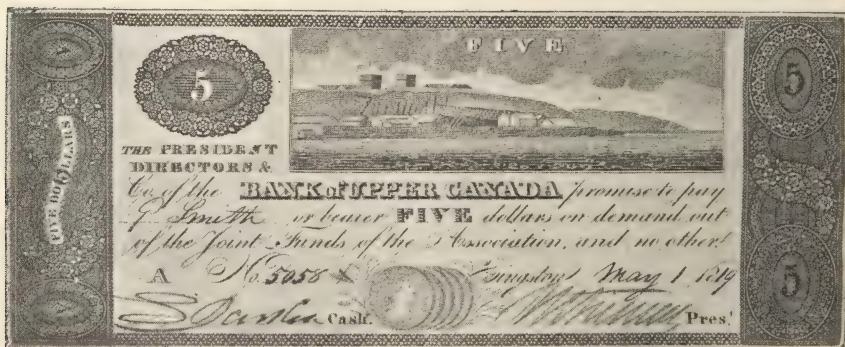 FIVE
5
5
THE PRESIDENT
DIRECTORS &
Co. of the BANK of UPPER CANADA promise to pay
G Smith or bearer FIVE dollars on demand out
of the Joint Funds of the Association, and no other
FIVE DOLLARS
A No. 5058 Kingston May 1 1819
5
Cash. Pres.t